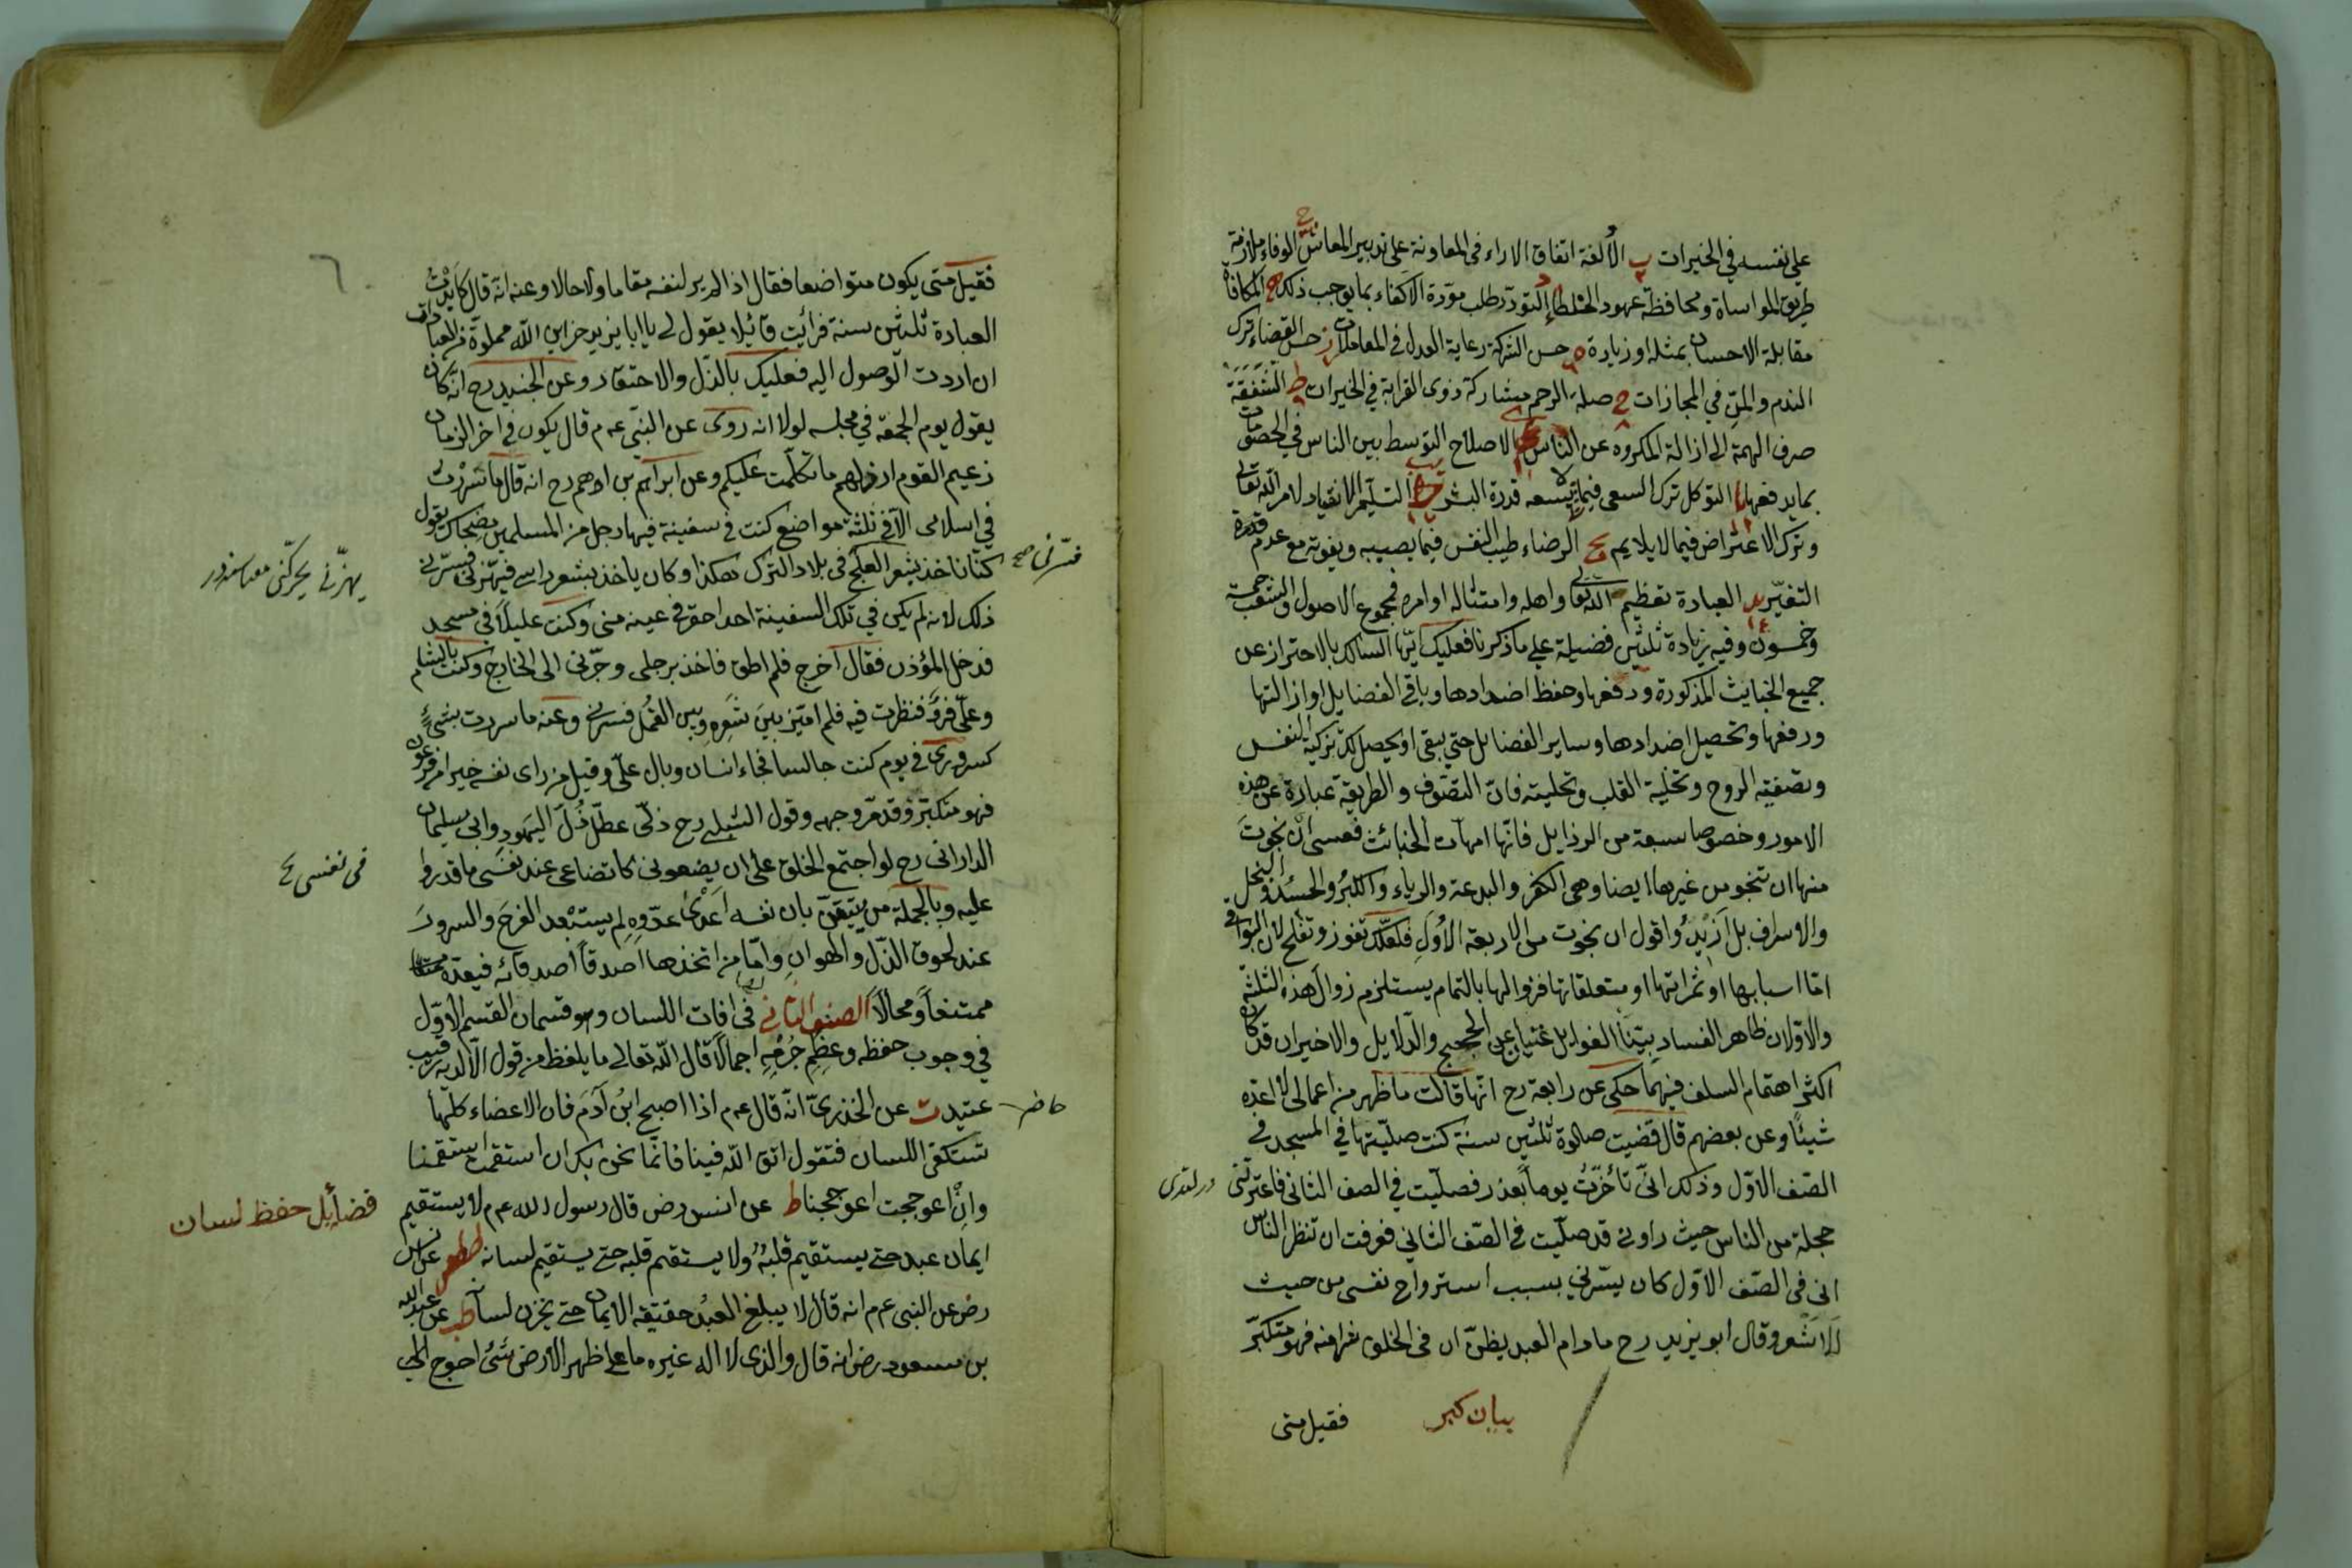 على نفسه في الخيرات ب الألفة اتفاق الاراء في المعاونة على تدبير المعاش ج الوفاء ملازمة
طريق المواساة ومحافظة عهود الخلطاء د التودد طلب مودة الاكفاء بما يوجب ذلك ه المكافاة
مقابلة الاحسان بمثله او زيادة و حسن الشركة رعاية العدل في المعاملات ز حسن القضاء ترك
الندم والمن في المجازات ح صلة الرحم مشاركة ذوى القرابة في الخيرات ط الشفقة
صرف الهمة الى ازالة المكروه عن الناس ى الاصلاح التوسط بين الناس في الخصومات
بما يدفعها يا التوكل ترك السعى فيما لا يسعه قدرة البشر يب التسليم الانقياد لامر الله تعالى
وترك الاعتراض فيما لا يلايم يج الرضاء طيب النفس فيما يصيبه ويفوته مع عدم قدرة
التغير يد العبادة تعظيم الله تعالى واهله وامتثاله اوامره فمجموع الاصول والشعب خمسة
وخمسون وفيه زيادة ثلثين فضيلة على ما ذكرنا فعليك ايها السالك بالاحتراز عن
جميع الخبايث المذكورة ودفعها وحفظ اضدادها وباقي الفضايل او ازالتها
ورفعها وتحصيل اضدادها وساير الفضايل حتى يبقى او يحصل لك تزكية النفس
وتصفية الروح وتخلية القلب وتحليته فان التصوف والطريقة عبارة عن هذه
الامور وخصوصا سبعة من الرذايل فانها امهات الخبائث فعسى ان نجوت
منها ان تنجو من غيرها ايضا وهي الكفر والبدعة والرياء والكبر والحسد والبخل
والاسراف بل ازيد واقول ان نجوت من الاربعة الأول فلعلك تفوز وتفلح لان البواقى
اما اسبابها او ثمراتها او متعلقاتها فزوالها بالتمام يستلزم زوال هذه الثلثة
والاولان ظاهر الفساد بيننا الغوايل غنيان عن الحجج والدلايل والاخيران قد كان
اكثر اهتمام السلف فيهما حكى عن رابعة رح انها قالت ما ظهر من اعمالى لا اعده
شيئا وعن بعضهم قال قضيت صلوة ثلثين سنة كنت صليتها في المسجد في
الصف الاول وذلك انى تأخرت يوما بعذر فصليت في الصف الثانى فاعترتنى
خجلة من الناس حيث راونى قد صليت في الصف الثاني فعرفت ان نظر الناس
انى في الصف الاول كان يسرني بسبب استرواح نفسى من حيث
لا اشعر وقال ابو يزيد رح ما دام العبد يظن ان في الخلق شرا منه فهو متكبر
بيان كبر
فقيل متى
فقيل متى يكون متواضعا فقال اذا لم ير لنفسه مقاما ولا حالا وعنه انه قال كابدت
العبادة ثلثين سنة فرأيت قائلا يقول لى يا ابا يزيد خزاين الله مملوة من العبادات
ان اردت الوصول اليه فعليك بالذل والاحتقار وعن الجنيد رح انه كان
يقول يوم الجمعة في مجلسه لولا انه روى عن النبي عم قال يكون في اخر الزمان
زعيم القوم ارذلهم ما تكلمت عليكم وعن ابراهيم بن ادهم رح انه قال ما سررت
في اسلامى الا في ثلثة مواضع كنت في سفينة فيها رجل من المسلمين مضحاك يقول
كنا ناخذ بشعر العلج في بلاد الترك هكذا وكان ياخذ بشعر راسى فيهزنى فسرنى
ذلك لانه لم يكن في تلك السفينة احد احقر في عينه منى وكنت عليلا في مسجد
فدخل المؤذن فقال اخرج فلم اطق فاخذ برجلى وجرنى الى الخارج وكنت بالشام
وعلى فرو فنظرت فيه فلم اميز بين شعره وبين القمل فسرنى وعنه ما سررت بشئ
كسرورى في يوم كنت جالسا فجاء انسان وبال على وقيل من راى نفسه خيرا من فرعون
فهو متكبر وقد مر وجهه وقول الشبلى رح ذلى عطل ذل اليهود وابى سليمان
الدارانى رح لو اجتمع الخلق على ان يضعونى كاتضاعى عند نفسى ما قدروا
عليه وبالجملة من يتيقن بان نفسه اعدى عدوه لم يستبعد الفرح والسرور
عند لحوق الذل والهوان واما من اتخذها اصدق اصدقائه فيعده
ممتنعا ومحالا الصنف الثاني في افات اللسان وهو قسمان القسم الاول
في وجوب حفظه وعظم جرمه اجمالا قال الله تعالى ما يلفظ من قول الا لديه رقيب
عتيد ت عن الخدري انه قال عم اذا اصبح ابن آدم فان الاعضاء كلها
تستكفى اللسان فتقول اتق الله فينا فانما نحن بك ان استقمت استقمنا
وان اعوججت اعوججنا ط عن انس رض قال رسول الله عم لا يستقيم
ايمان عبد حتى يستقيم قلبه ولا يستقيم قلبه حتى يستقيم لسانه عن انس
رض عن النبى عم انه قال لا يبلغ العبد حقيقة الايمان حتى يخزن لسانه ط عن عبد الله
بن مسعود رض انه قال والذى لا اله غيره ما على ظهر الارض شئ احوج الى
فسرنى صح
يهزنى يحركنى
في نفسى
حاضر
فضائل حفظ لسان
٦